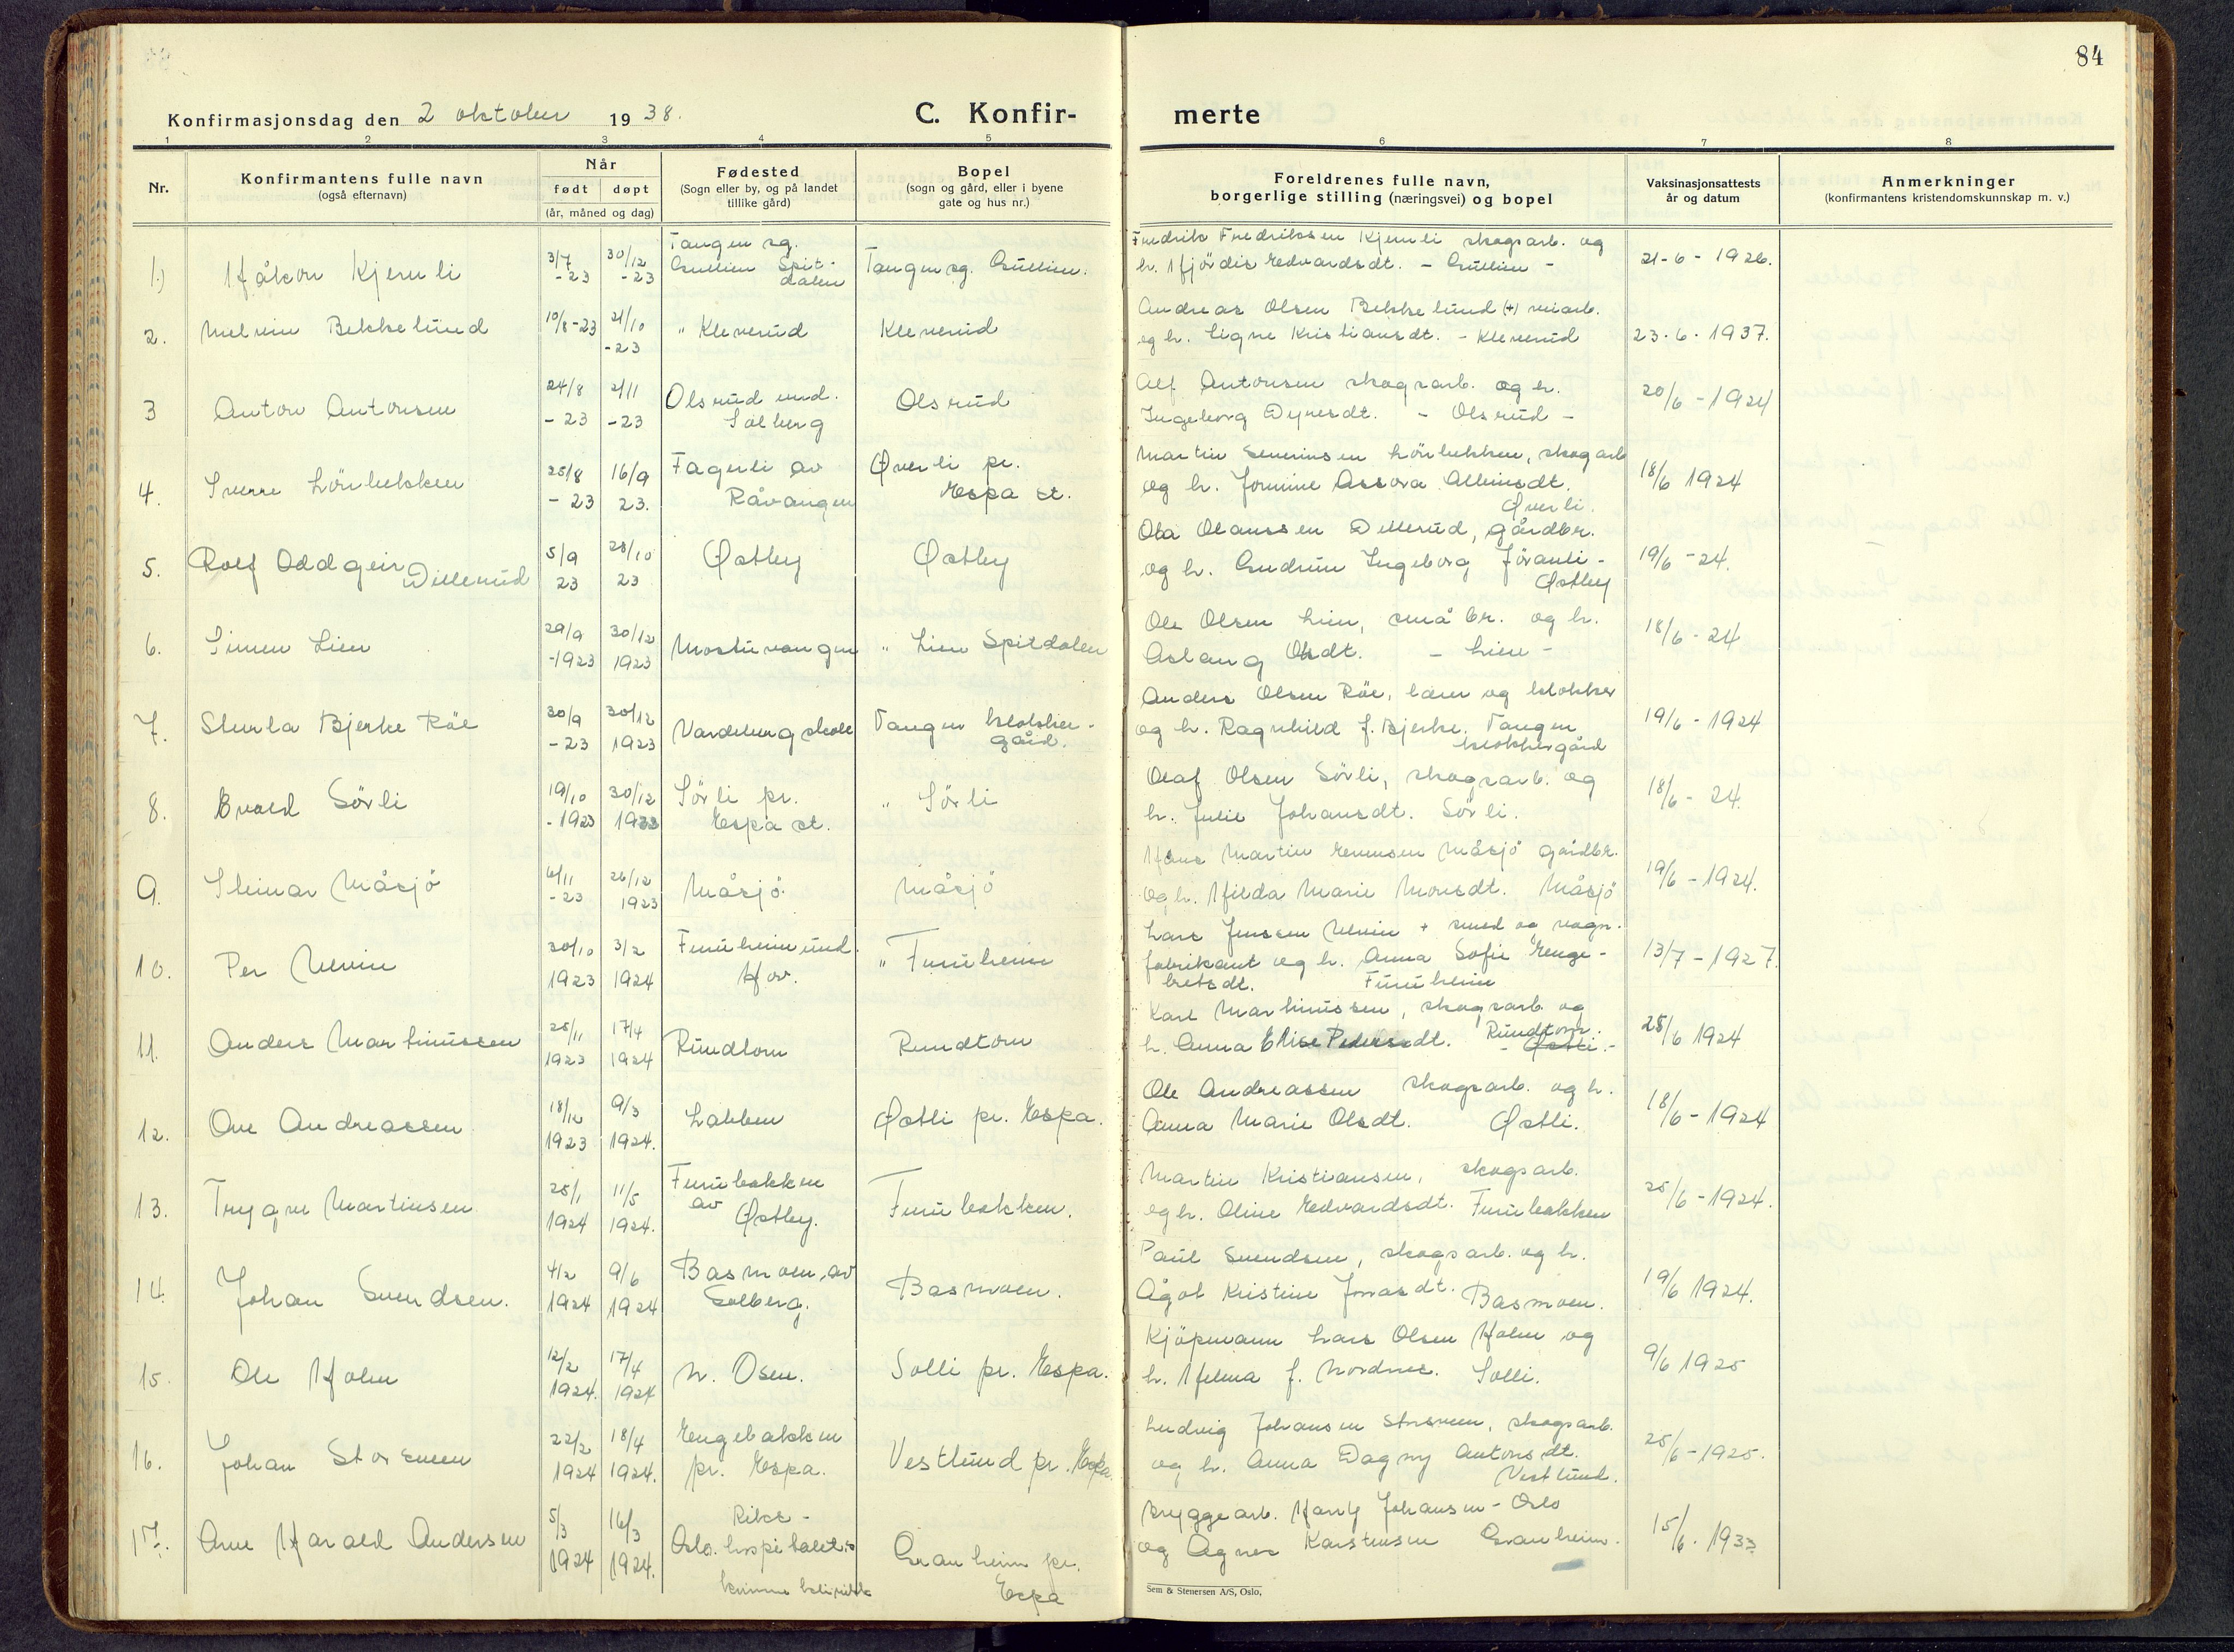 84
Konfirmasjonsdag den 2 oktober 1938.
C. Konfir-
merte
1 2 3 4 5 6 7 8
Nr.
Konfirmantens fulle navn
(også efternavn)
Når
født døpt
(år, måned og dag)
Fødested
(Sogn eller by, og på landet
tillike gård)
Bopel
(sogn og gård, eller i byene
gate og hus nr.)
Foreldrenes fulle navn,
borgerlige stilling (næringsvei) og bopel
Vaksinasjonsattests
år og datum
Anmerkninger
(konfirmantens kristendomskunnskap m. v.)
1.) Håkon Kjernli 3/7 -23 30/12 -23
Tangen sg.
Gullien Spit-
dalen
Tangen sg. Gullien.
Fredrik Fredriksen Kjernli skogsarb. og
h. Hjördis Edvardsdt. - Gullien -
21-6-1926.
2. Melvin Bekkelund 10/8-23 21/10 -23
" Kleverud
Kleverud
Andreas Olsen Bekkelund (+) veiarb.
og h. Signe Kristiansdt. - Kleverud
23-6-1937.
3 Anton Antonsen 24/8 -23 2/11 -23
Olsrud und.
Solberg
Olsrud
Alf Antonsen skogsarb. og h.
Ingeborg Dyresdt. - Olsrud -
20/6-1924
4. Sverre Lönbekken 25/8 -23 16/9 23.
Fagerli av
Råvangen
Øverli pr.
Espa st.
Martin Severinsen Lönbekken, skogarb
og h. Jormine Assora Albinsdt.
Øverli.
18/6 1924
5. Rolf Oddgeir Dillerud 5/9 23 28/10 23
Østby
Østby
Ola Olaussen Dillerud, gårdbr.
og h. Gudrun Ingeborg Jöranli -
Østby
19/6-24.
6. Simen Lien 29/9 -1923 30/12 1923
Mostuvangen
" Lien Spitdalen
Ole Olsen Lien, små br. og h.
Aslaug Olsdt. - Lien -
18/6-24
7. Sturla Bjerke Röe 30/9 -23 30/12 1923
Vardeberg skole
Tangen klokker-
gård.
Anders Olsen Röe, lærer og klokker
og h. Ragnhild f. Bjerke. Tangen
klokkergård
19/6-1924
8. Evald Sörli 19/10 -1923 30/12 1923
Sörli pr.
Espa st.
" Sörli
Olaf Olsen Sörli, skogsarb. og
h. Julie Johansdt. Sörli.
18/6-24.
9. Steinar Måsjö 6/11 -23 26/12 1923
Måsjö
Måsjö
Hans Martin Evensen Måsjö gårdbr.
og h. Hilda Marie Monsdt. Måsjö
19/6-1924.
10. Per Ulven 30/10 1923 3/2 1924
Furuheim und.
Hov.
" Furuheim
Lars Jenssen Ulven + smed og vogn-
fabrikant og h. Anna Sofie Enge-
bretsdt. Furuheim
13/7-1927.
11. Anders Martinussen 25/11 1923 17/4 1924
Rundtom
Rundtom
Karl Martinussen, skogsarb. og
h. Anna Elise Pedersdt. Rundtom.
- Østli. -
25/6 1924
12. Ove Andreassen 18/12 1923 9/3 1924.
Labben
Østli pr. Espa.
Ole Andreassen skogsarb. og h.
Anna Marie Olsdt. Østli.
18/6-1924
13. Trygve Martinsen 25/1 1924 11/5 1924.
Furubakken
av Østby.
Furubakken.
Martin Kristiansen, skogsarb.
og h. Oline Edvardsdt. Furubakken
25/6-1924.
14. Johan Svendsen. 4/2 1924 9/6 1924
Basmoen, av
Solberg.
Basmoen.
Paul Svendsen, skogsarb. og h.
Ågot Kristine Jonasdt. Basmoen.
19/6 1924.
15. Ole Holm 12/2 1924. 17/4 1924
N. Osen.
Solli pr. Espa.
Kjöpmann Lars Olsen Holm og
h. Helma f. Nordnes. Solli.
9/6 1925
16. Johan Storsveen 22/2 1924 18/4 1924.
Engebakken
pr. Espa.
Vestlund pr. Espa.
Ludvig Johansen Storsveen, skogsarb.
og h. Anna Dagny Antonsdt.
Vestlund.
25/6-1925.
17. Arne Harald Andersen 5/3 1924 16/3 1924.
Riks-
Oslo. hospitalets
kvinneklinikk
Granheim pr.
Espa
Bryggearb. Harly Johansen - Oslo
og Agnes Karstensen Granheim.
15/6. 1933.
Sem & Stenersen A/S, Oslo.